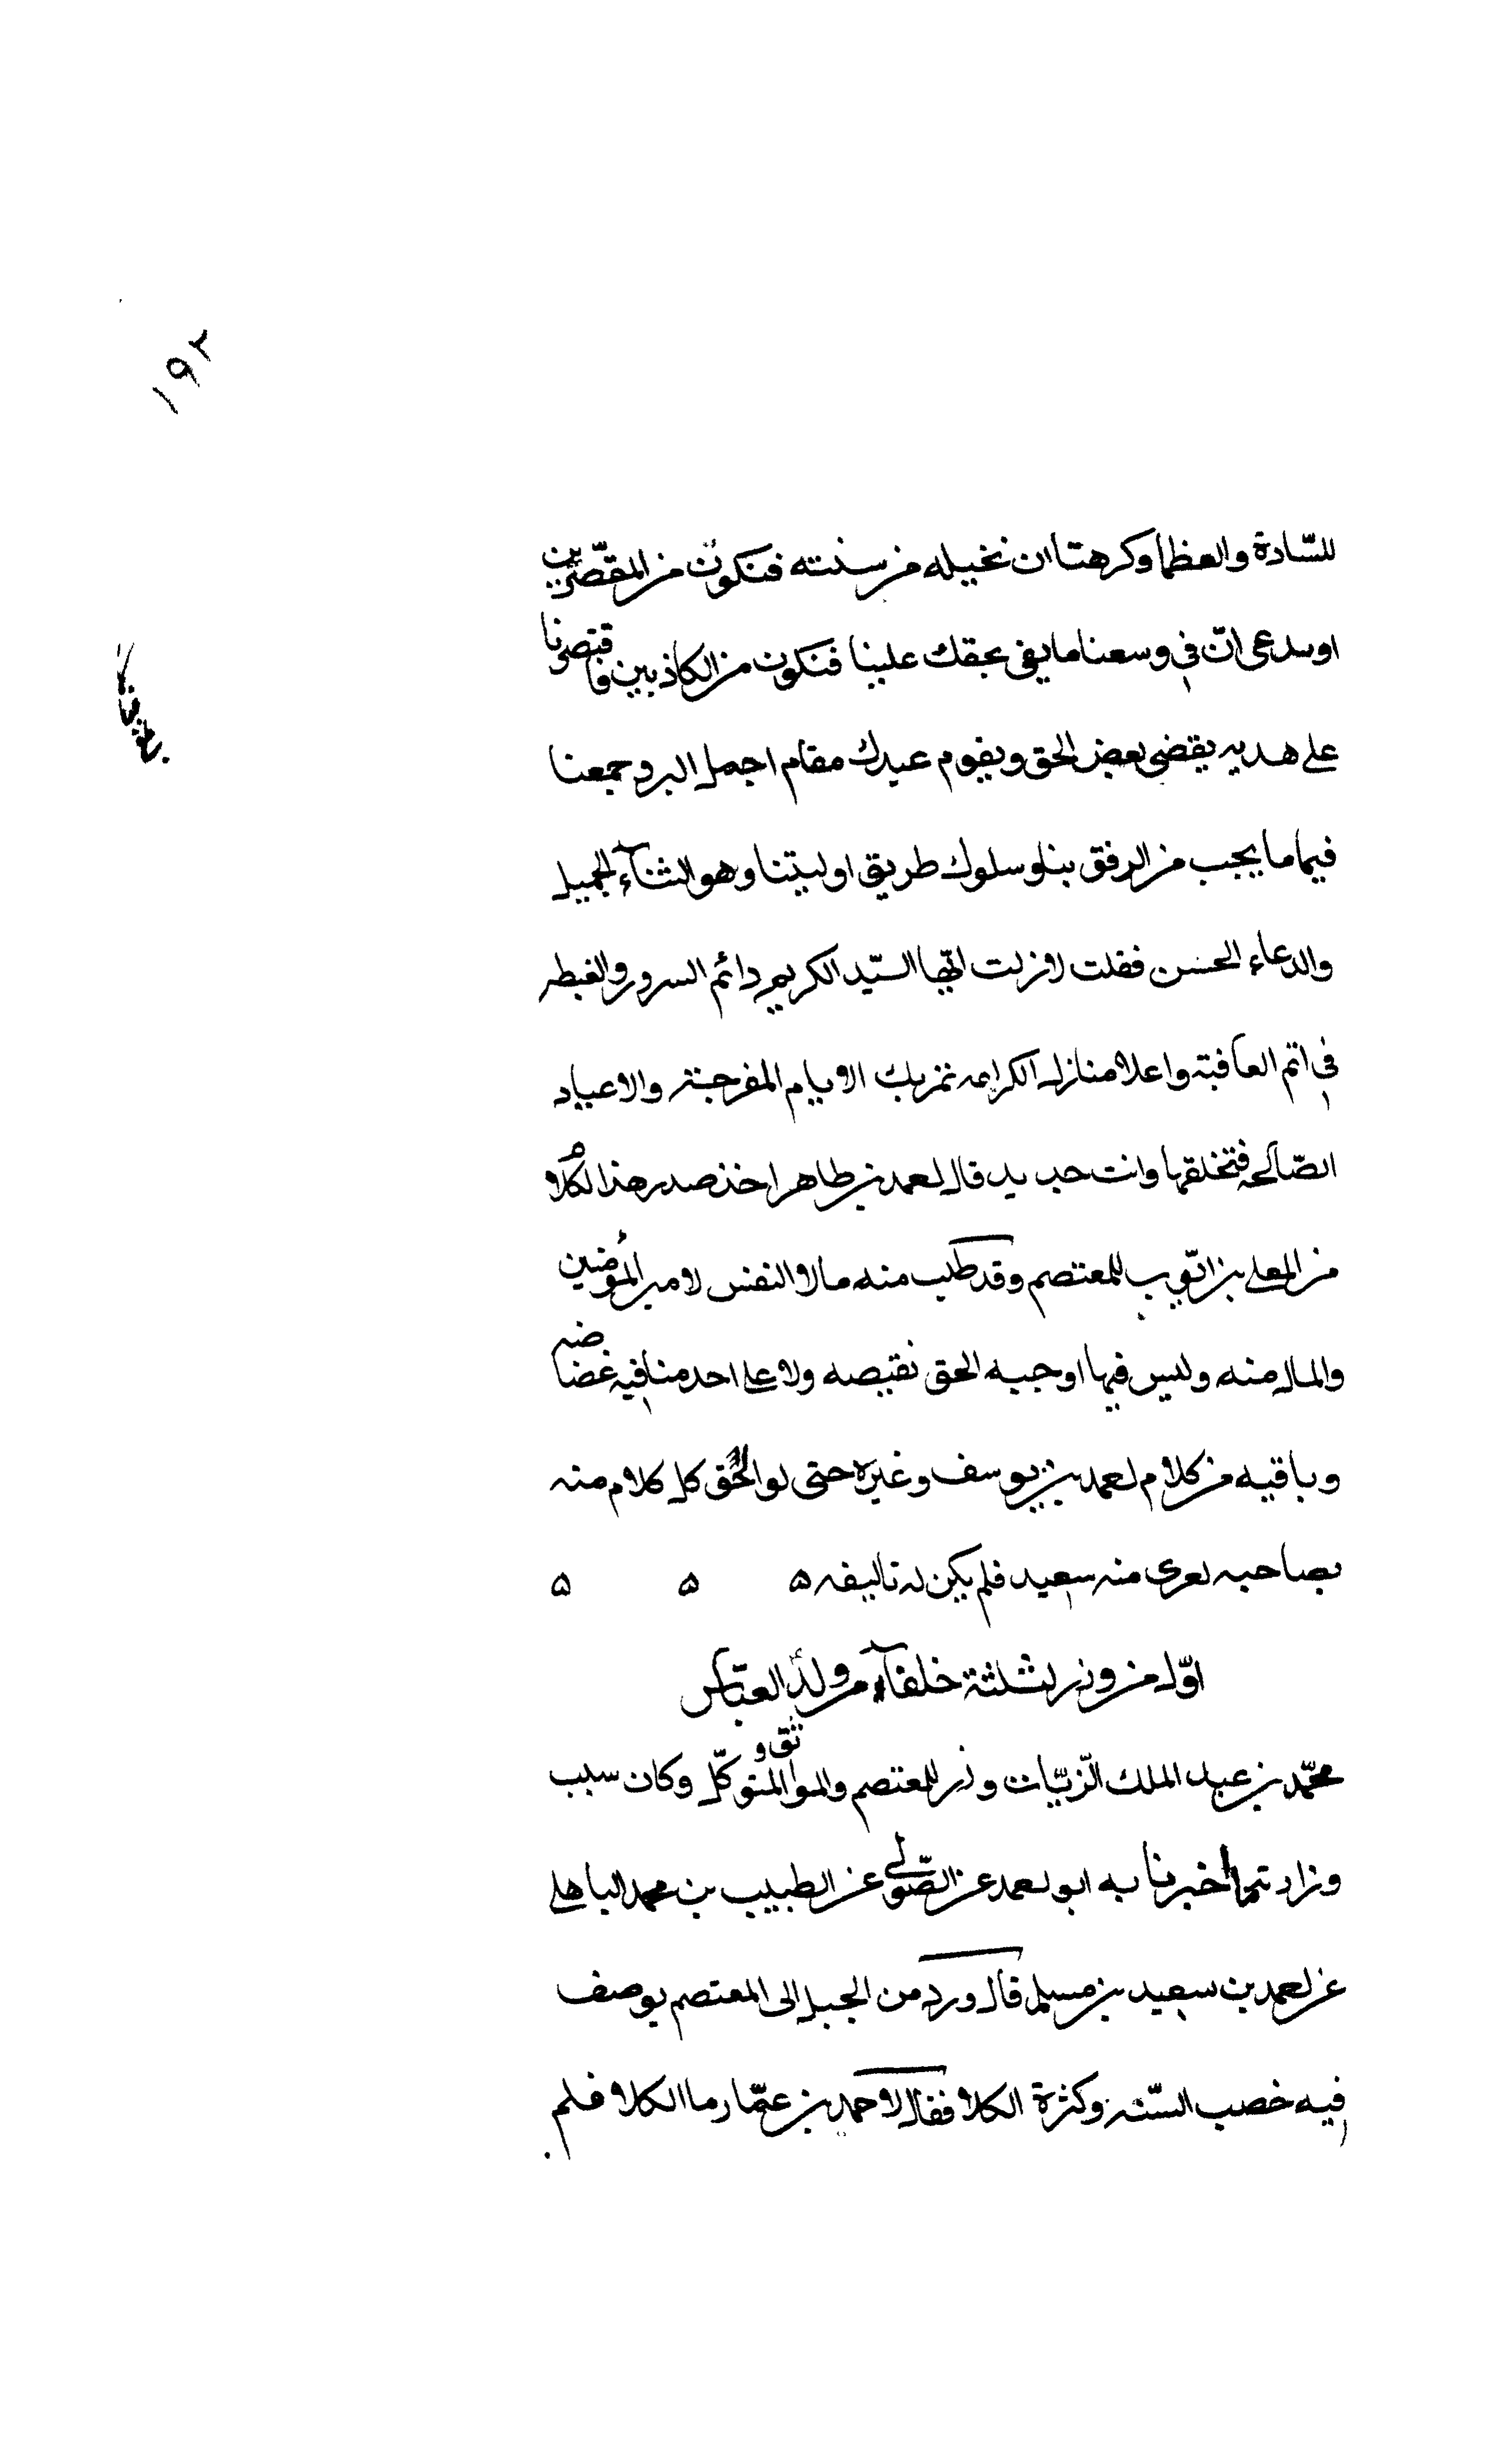 ١٩٢
للسّادة والعظما وكرهتا ان نخيله من سنته فنكون من المقصّرين
او ىدعى انّ في وسعنا ما يفى بحقك علينا فنكون من الكاذبين فاقتصرنا
على هديه يقضى بعض الحق ويقوم عىدك مقام اجمل البر وجمعنا
فيها ما يجب من الرفق بنا وسلوك طريق اوليتنا وهو الثنآء الجميل
والدعاء الحسن فقلت لا زلت ايّها السّيد الكريم دائم السرور والغبطه
في اتم العافية واعلا منازل الكرامه تمر بك الايام المفرحة والاعياد
الصّالحه فتخلقها وانت جديد قال احمد بن طاهر اخذ صدر هذا الكلام
من المعلى بن ايّوب للمعتصم وقد طلب منه مالا النفس لامير المؤمنين
والمال منه وليس فيما اوجبه الحق نقيصه ولا على احد منا فيه غضاضه
وباقيه من كلام احمد بن يوسف وغيره حتى لو الحق كل كلام منه
بصاحبه لعرى منه سعيد فلم يكن له تاليفه ه ه ه
اوّل من وزر لثلثة خلفآء من ولد العبّاس
محمّد بن عبد الملك الزّيّات وزر للمعتصم والواثق والمتوكّل وكان سبب
وزارته ما اخبرنا به ابو احمد عن الصّولي عن الطيب بن محمد الباهلى
عن احمد بن سعيد بن مسلم قال ورد من الجبل الى المعتصم يوصف
فيه خصب السّنه وكثرة الكلا فقال لاحمد بن عمّار ما الكلا فلم